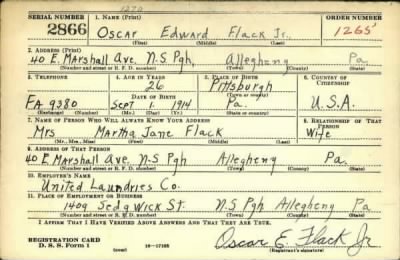 1270
SERIAL NUMBER 1. NAME (Print) ORDER NUMBER
2866 Oscar Edward Flack Jr. 1265
(First) (Middle) (Last)
2. ADDRESS (Print)
40 E. Marshall Ave. N.S. Pgh, Allegheny Pa.
(Number and street or R. F. D. number) (Town) (County) (State)
3. TELEPHONE 4. AGE IN YEARS 5. PLACE OF BIRTH 6. COUNTRY OF CITIZENSHIP
26 Pittsburgh
DATE OF BIRTH (Town or county)
FA 9380 Sept 1 1914 Pa. U.S.A.
(Exchange) (Number) (Mo.) (Day) (Yr.) (State or country)
7. NAME OF PERSON WHO WILL ALWAYS KNOW YOUR ADDRESS 8. RELATIONSHIP OF THAT PERSON
Mrs Martha Jane Flack Wife
(Mr., Mrs., Miss) (First) (Middle) (Last)
9. ADDRESS OF THAT PERSON
40 E. Marshall Ave. N-S Pgh Allegheny Pa.
(Number and street or R. F. D. number) (Town) (County) (State)
10. EMPLOYER'S NAME
United Laundries Co.
11. PLACE OF EMPLOYMENT OR BUSINESS
1409 Sedgwick St. N.S Pgh Allegheny Pa
(Number and street or R. F. D. number) (Town) (County) (State)
I AFFIRM THAT I HAVE VERIFIED ABOVE ANSWERS AND THAT THEY ARE TRUE.
REGISTRATION CARD
D. S. S. Form 1 (over) 16-17105 Oscar E. Flack Jr
(Registrant's signature)